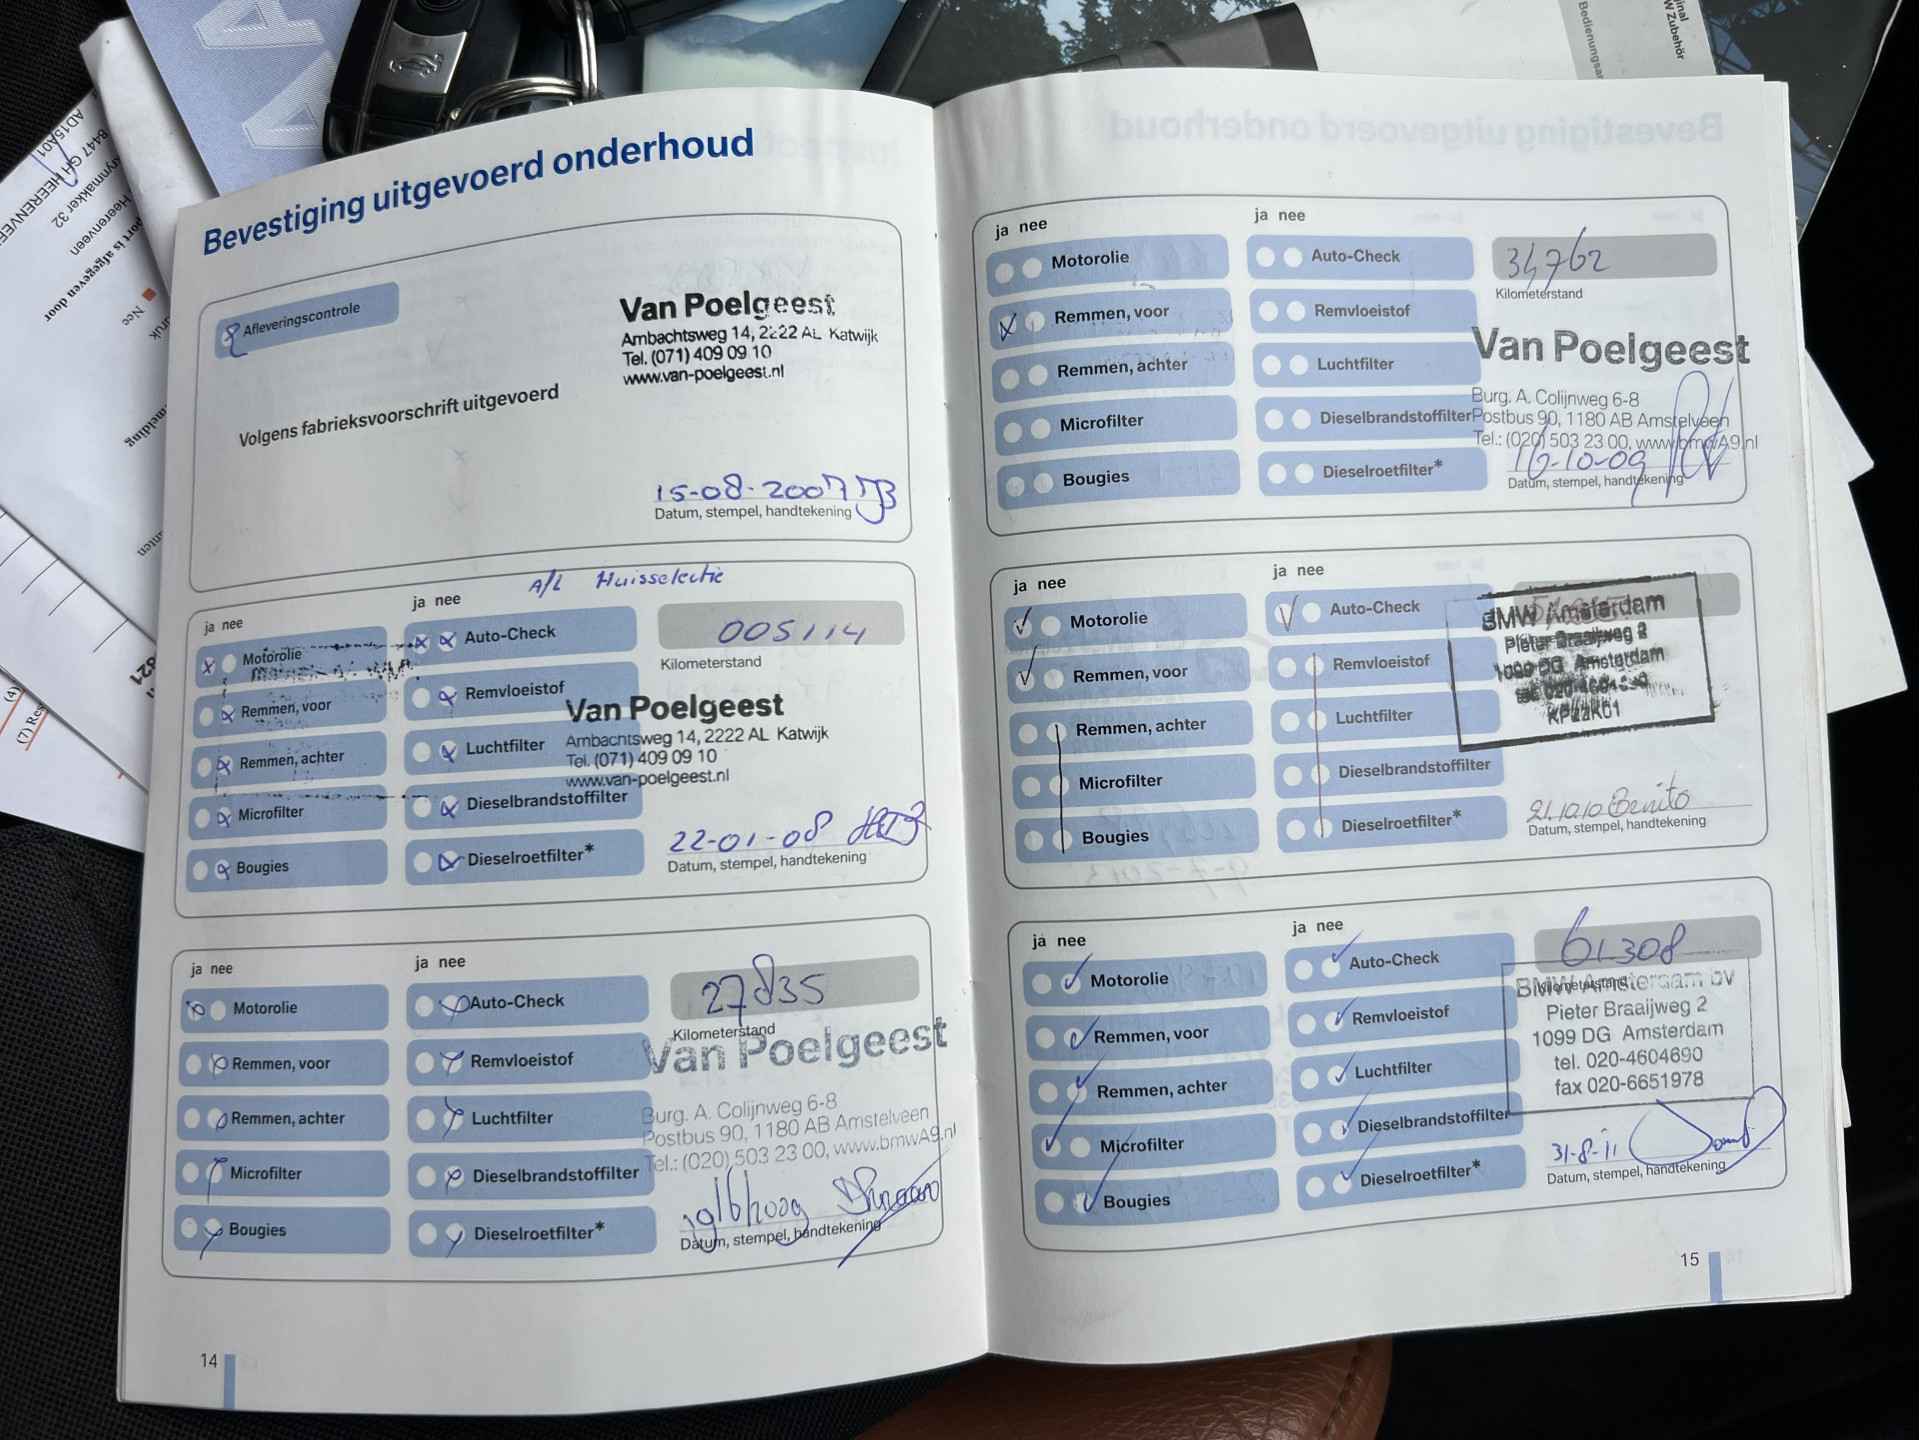 Bevestiging uitgevoerd onderhoud
Afleveringscontrole
Volgens fabrieksvoorschrift uitgevoerd
Van Poelgeest
Ambachtsweg 14, 2222 AL Katwijk
Tel. (071) 409 09 10
www.van-poelgeest.nl
15-08-2007
Datum, stempel, handtekening
A/L Huisselectie
ja nee
ja nee
Motorolie
Remmen, voor
Remmen, achter
Microfilter
Bougies
Auto-Check
Remvloeistof
Luchtfilter
Dieselbrandstoffilter
Dieselroetfilter*
005114
Kilometerstand
Van Poelgeest
Ambachtsweg 14, 2222 AL Katwijk
Tel. (071) 409 09 10
www.van-poelgeest.nl
22-01-08
Datum, stempel, handtekening
ja nee
ja nee
Motorolie
Remmen, voor
Remmen, achter
Microfilter
Bougies
Auto-Check
Remvloeistof
Luchtfilter
Dieselbrandstoffilter
Dieselroetfilter*
27835
Kilometerstand
Van Poelgeest
Burg. A. Colijnweg 6-8
Postbus 90, 1180 AB Amstelveen
Tel.: (020) 503 23 00, www.bmwA9.nl
Datum, stempel, handtekening
14
ja nee
ja nee
Motorolie
Remmen, voor
Remmen, achter
Microfilter
Bougies
Auto-Check
Remvloeistof
Luchtfilter
Dieselbrandstoffilter
Dieselroetfilter*
34762
Kilometerstand
Van Poelgeest
Burg. A. Colijnweg 6-8
Postbus 90, 1180 AB Amstelveen
Tel.: (020) 503 23 00, www.bmwA9.nl
16-10-09
Datum, stempel, handtekening
ja nee
ja nee
Motorolie
Remmen, voor
Remmen, achter
Microfilter
Bougies
Auto-Check
Remvloeistof
Luchtfilter
Dieselbrandstoffilter
Dieselroetfilter*
BMW Amsterdam
Pieter Braaijweg 2
1099 DG Amsterdam
21.10.10 Benito
Datum, stempel, handtekening
ja nee
ja nee
Motorolie
Remmen, voor
Remmen, achter
Microfilter
Bougies
Auto-Check
Remvloeistof
Luchtfilter
Dieselbrandstoffilter
Dieselroetfilter*
61308
Kilometerstand
BMW Amsterdam bv
Pieter Braaijweg 2
1099 DG Amsterdam
tel. 020-4604690
fax 020-6651978
31-8-11
Datum, stempel, handtekening
15
AD15A01
8447 GH HEERENVEEN
Heerenveen
Nee